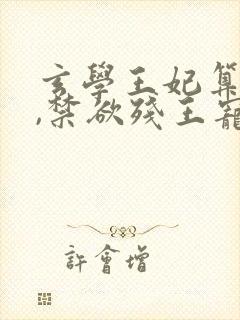 玄學王妃算
,禁欲殘王寵
許會增